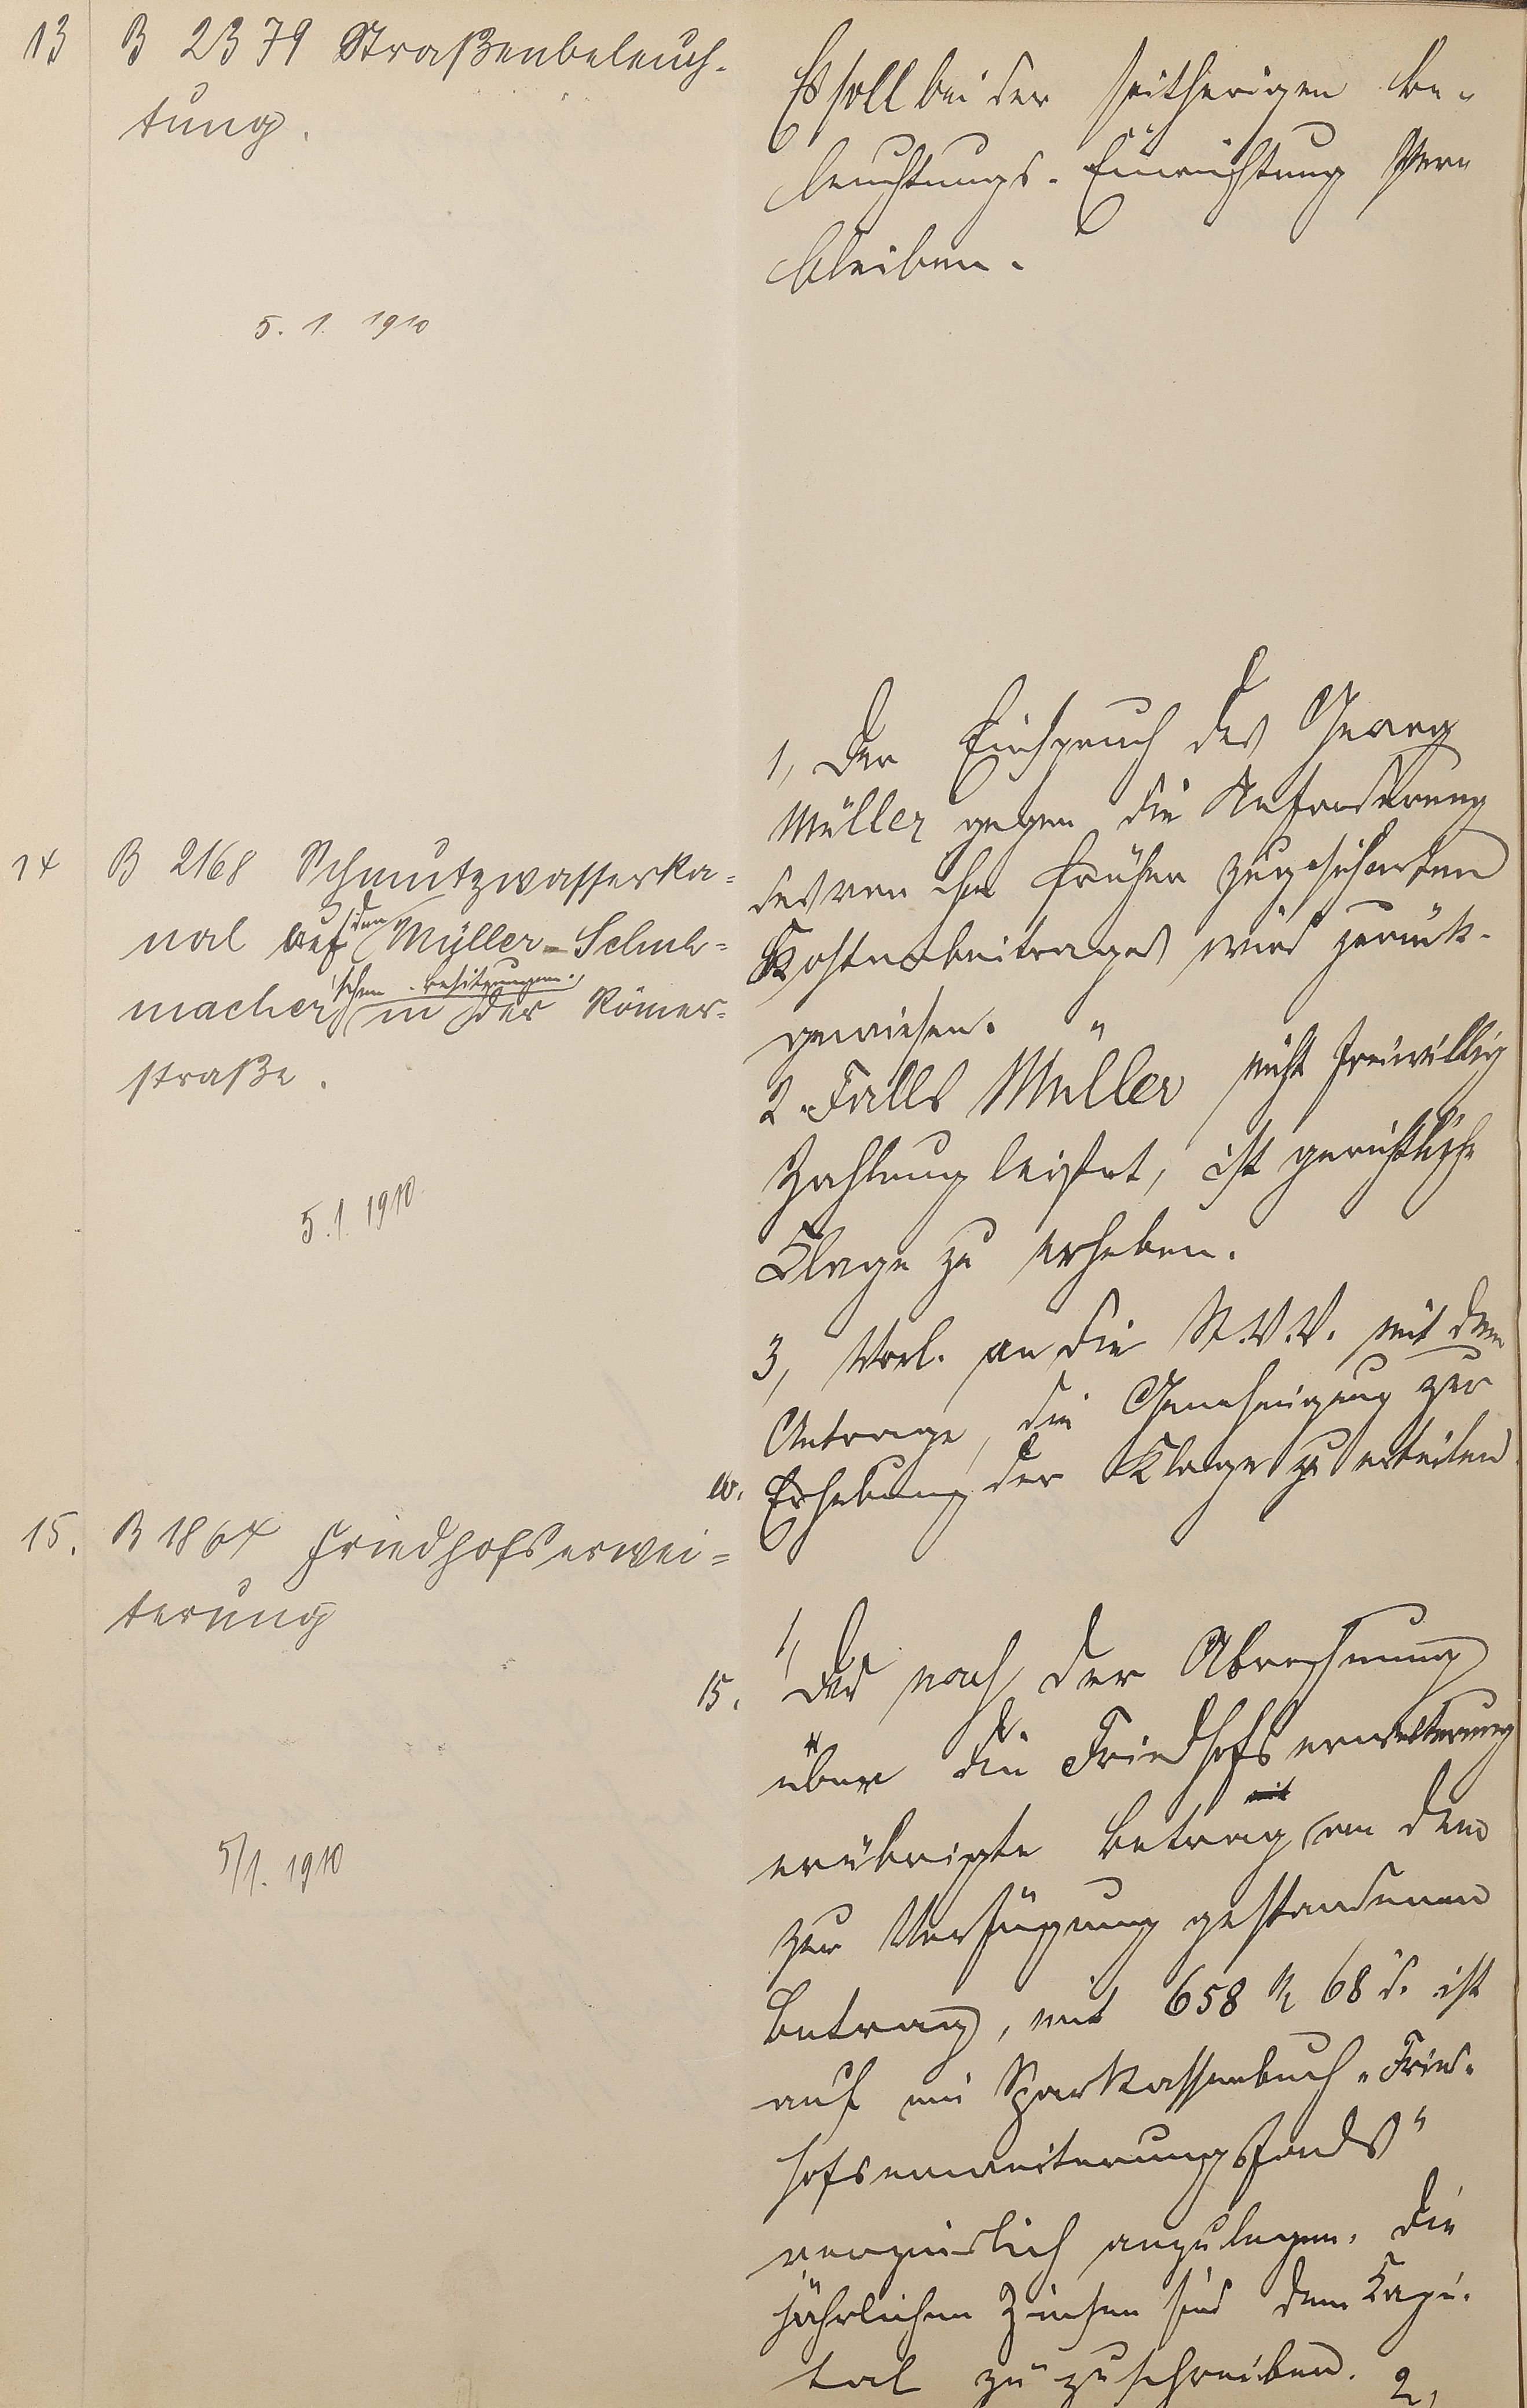 13 B 2379 Straßenbeleuch-
tung.
Es soll bei der seitherigen Be-
leuchtungs-Einrichtung ver-
bleiben.
5. 1. 1910
14 B 2168 Schmutzwasserka-
nal auf den Müller-Schuh-
macher'schen Besitzungen in der Römer-
straße.
5. 1. 1910
1, Der Einspruch des Georg
Müller gegen die Anforderung
des von ihm früher zugesicherten
Kostenbeitrages wird zurück-
gewiesen.
2. Falls Müller nicht freiwillig
Zahlung leistet, ist gerichtliche
Klage zu erheben.
3, Vorl. an die St.V.V. mit dem
Antrage, die Genehmigung zur
w. Erhebung der Klage zu erteilen.
15. B 1864 Friedhofserwei-
terung
5/1. 1910
15. 1, Der nach der Abrechnung
über die Friedhofserweiterung
erübrigte Betrag an dem
zur Verfügung gestandenen
Betrag, mit 658 M 68 d. ist
auf ein Sparkassenbuch "Fried-
hofserweiterungsfonds"
verzinslich anzulegen. Die
jährlichen Zinsen sind dem Kapi-
tal zuzuschreiben. 2,